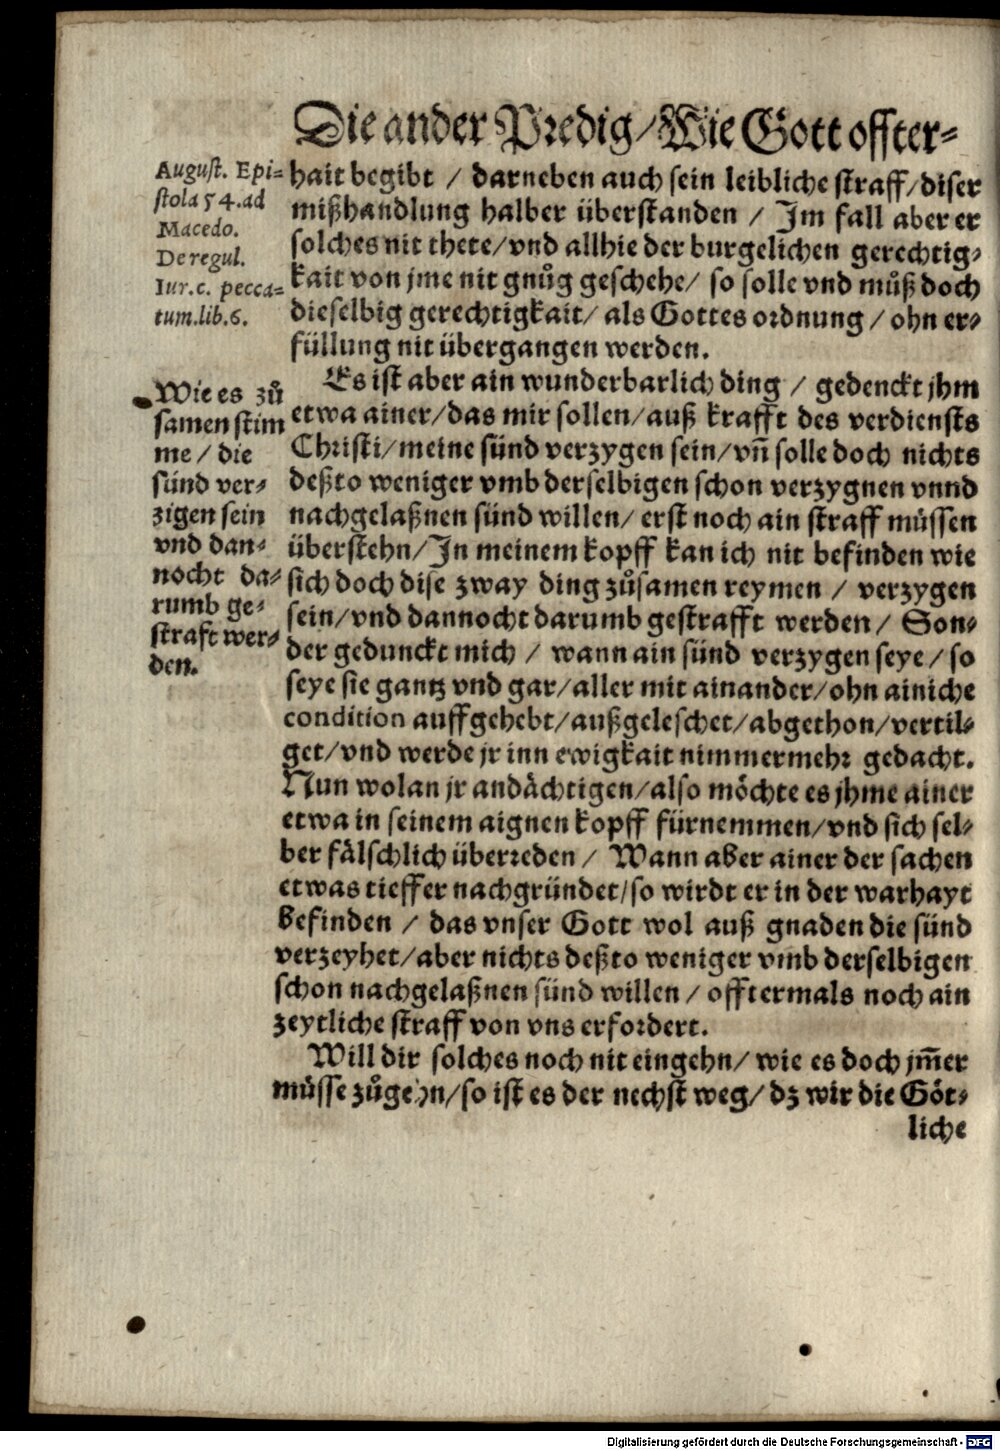 Die ander Predig/Wie Gott offter-
August. Epi-
stola 54.ad
Macedo.
De regul.
Iur.c. pecca-
tum.lib.6.
hait begibt / darneben auch sein leibliche straff/diser
mißhandlung halber überstanden / Im fall aber er
solches nit thete/vnd allhie der burgelichen gerechtig-
kait von jme nit gnůg geschehe/ so solle vnd můß doch
dieselbig gerechtigkait/ als Gottes ordnung / ohn er-
füllung nit übergangen werden.
Wie es zů
samen stim
me / die
sünd ver-
zigen sein
vnd dan-
nocht da-
rumb ge-
straft wer-
den.
Es ist aber ain wunderbarlich ding / gedenckt jhm
etwa ainer/das mir sollen/auß krafft des verdiensts
Christi/meine sünd verzygen sein/vñ solle doch nichts
deßto weniger vmb derselbigen schon verzygnen vnnd
nachgelaßnen sünd willen/ erst noch ain straff müssen
überstehn/In meinem kopff kan ich nit befinden wie
sich doch dise zway ding zůsamen reymen / verzygen
sein/vnd dannocht darumb gestrafft werden/ Son-
der gedunckt mich / wann ain sünd verzygen seye/ so
seye sie gantz vnd gar/aller mit ainander/ohn ainiche
condition auffgehebt/außgeleschet/abgethon/vertil-
get/vnd werde jr inn ewigkait nimmermehr gedacht.
Nun wolan jr andächtigen/also möchte es jhme ainer
etwa in seinem aignen kopff fürnemmen/vnd sich sel-
ber fälschlich überreden / Wann aber ainer der sachen
etwas tieffer nachgründet/so wirdt er in der warhayt
befinden / das vnser Gott wol auß gnaden die sünd
verzeyhet/aber nichts deßto weniger vmb derselbigen
schon nachgelaßnen sünd willen / offtermals noch ain
zeytliche straff von vns erfordert.
Will dir solches noch nit eingehn/ wie es doch jm̃er
müsse zůgehn/so ist es der nechst weg/ dz wir die Göt-
liche
Digitalisierung gefördert durch die Deutsche Forschungsgemeinschaft - DFG